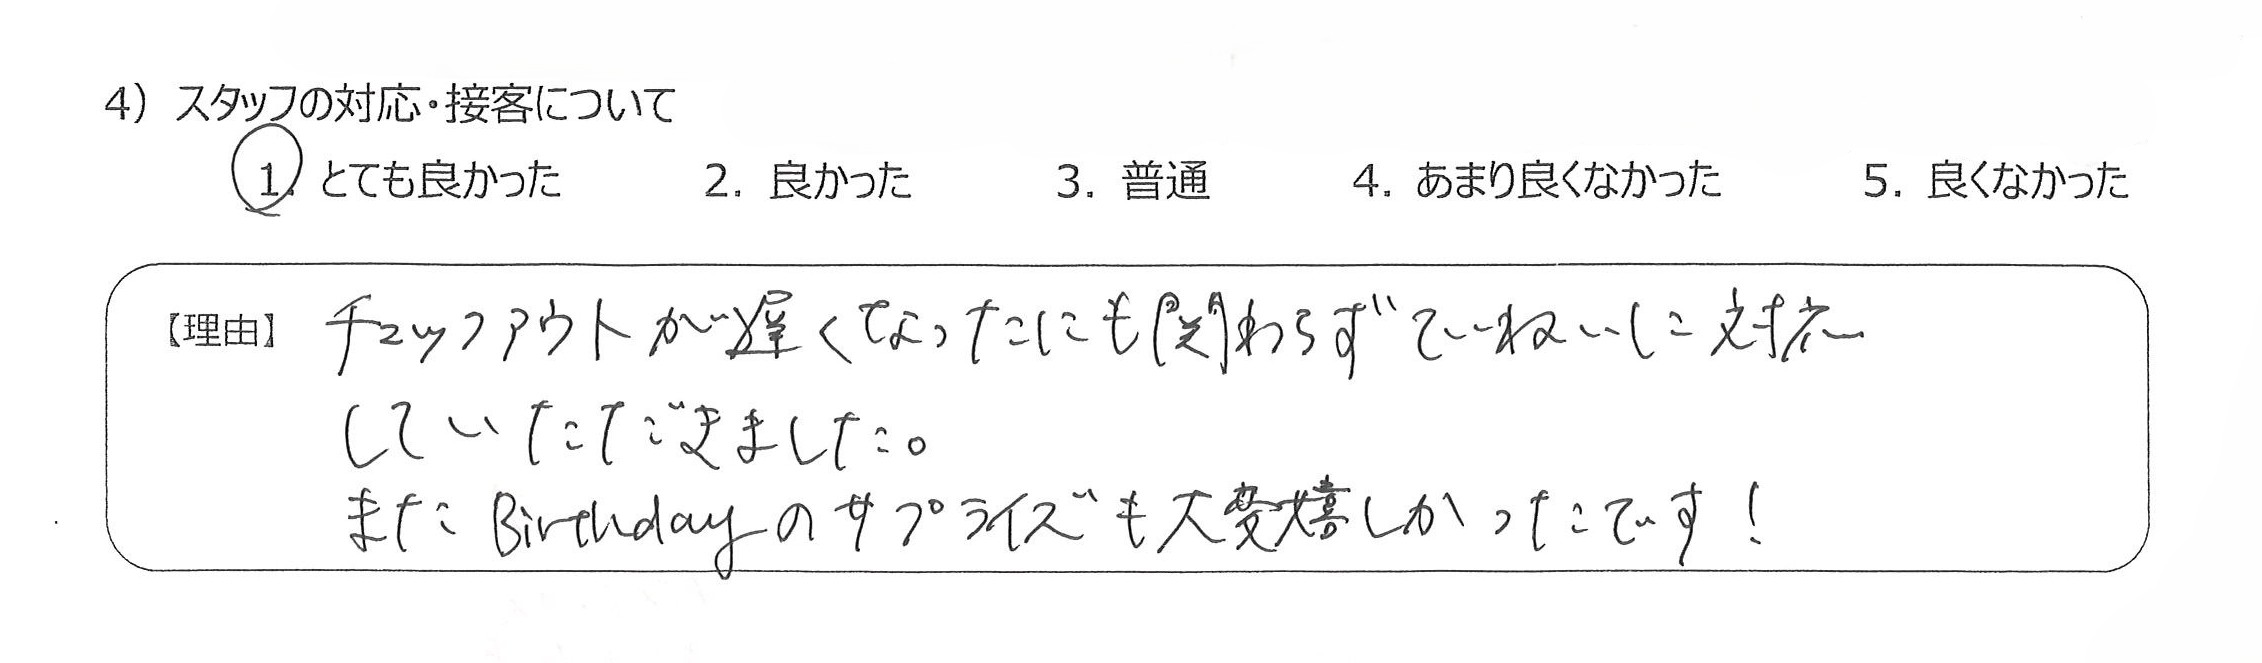 4) スタッフの対応・接客について
1. とても良かった 2. 良かった 3. 普通 4. あまり良くなかった 5. 良くなかった
【理由】 チェックアウトが遅くなったにも関わらずていねいに対応
していただきました。
またBirthdayのサプライズも大変嬉しかったです！